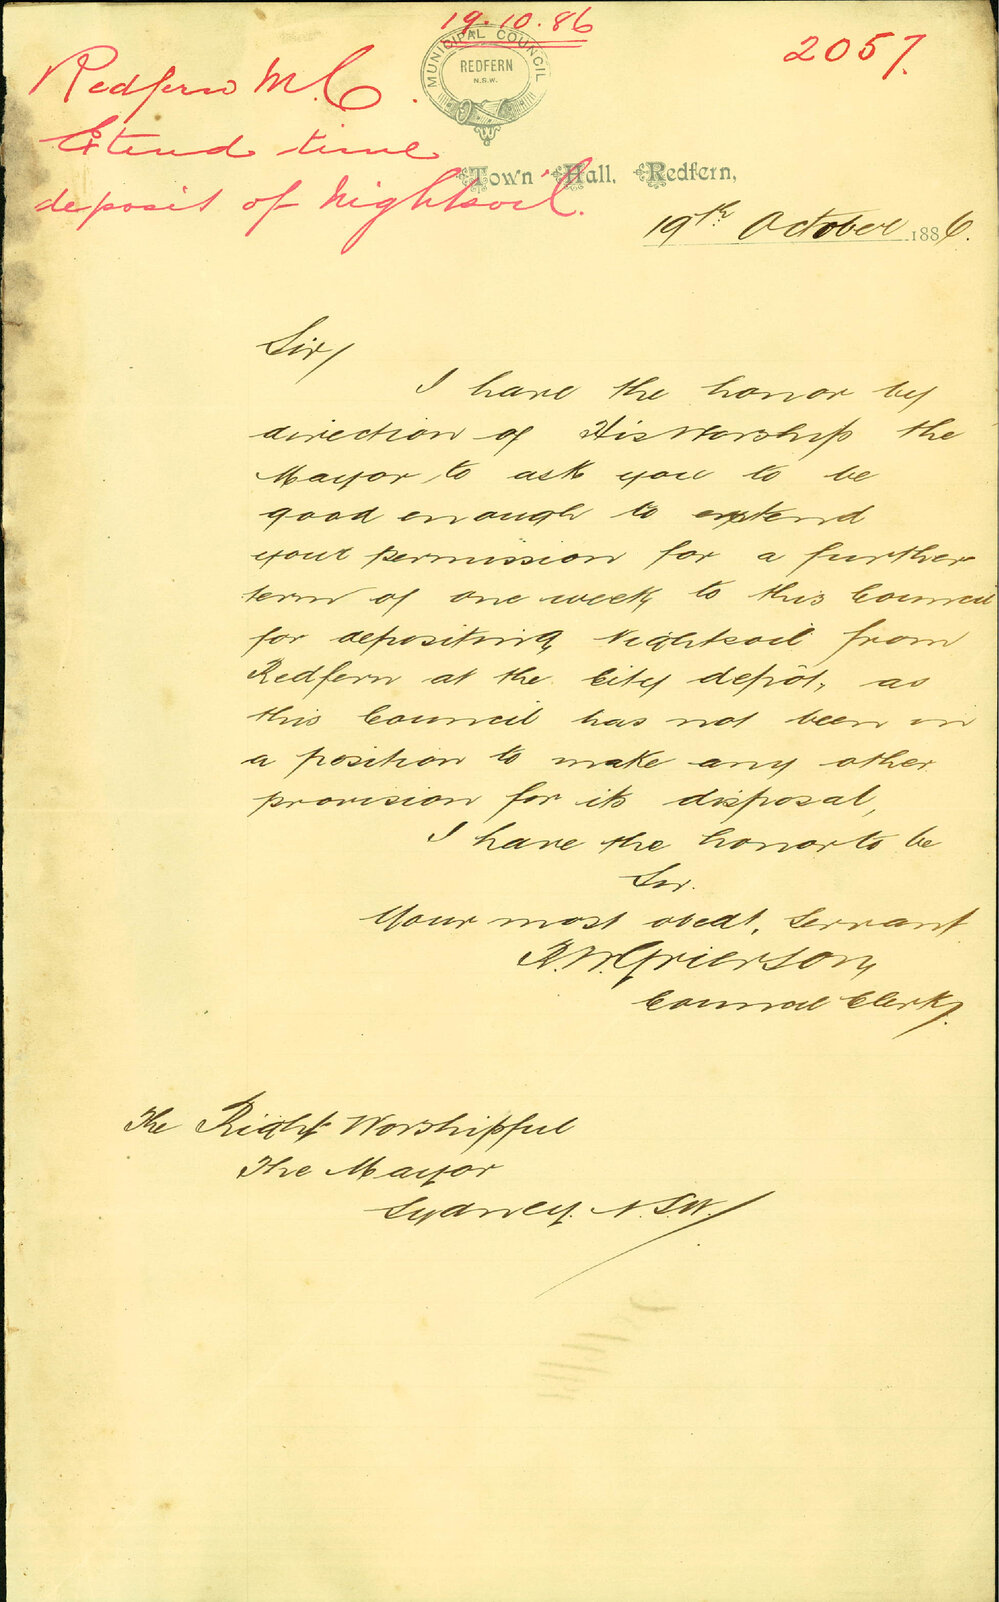 19.10.86
2057.
Redfern M.C.
Extend time
deposit of Nightsoil.
MUNICIPAL COUNCIL
REDFERN
N.S.W.
Town Hall, Redfern,
19th October 1886.
Sir/
I have the honor by
direction of His Worship the
Mayor, to ask you to be
good enough to extend
your permission for a further
term of one week, to this Council
for depositing Nightsoil from
Redfern at the City depôt, as
this Council has not been in
a position to make any other
provision for its disposal,
I have the honor to be
Sir.
Your most obedt. Servant
R.W. Grierson,
Council Clerk/.
The Right Worshipful
The Mayor
Sydney. N.S.W./